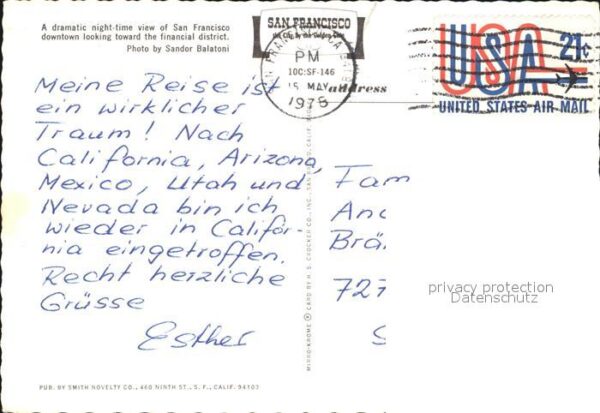 A dramatic night-time view of San Francisco
downtown looking toward the financial district.
Photo by Sandor Balatoni
SAN FRANCISCO
the City by the Golden Gate
PM
10C:SF-146
15 MAY
1975
address
USA
21c
UNITED STATES AIR MAIL
Meine Reise ist
ein wirklicher
Traum! Nach
California, Arizona,
Mexico, Utah und
Nevada bin ich
wieder in Califor-
nia eingetroffen.
Recht herzliche
Grüsse
Esther
Fam
And
Brä
727
S
privacy protection
Datenschutz
MIRRO-KROME ® CARD BY H. S. CROCKER CO., INC., SAN
PUB. BY SMITH NOVELTY CO., 460 NINTH ST., S. F., CALIF. 94103